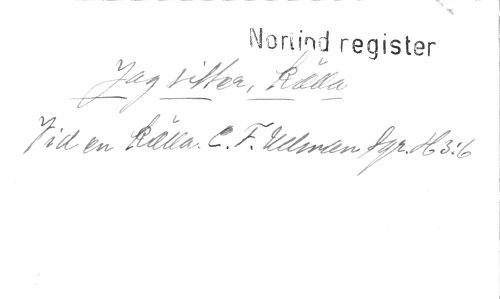 Norlind register
Jag sitter, källa
Vid en källa. C. F. Ullman Sgr. H 3:6